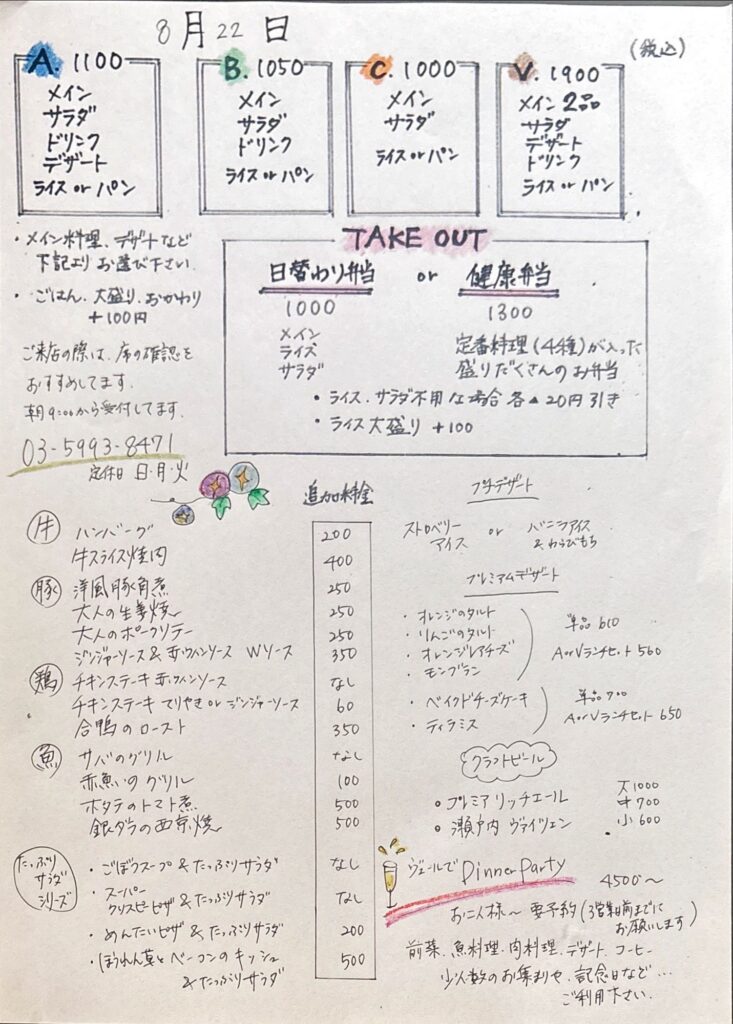 8月22日
(税込)
A. 1100
メイン
サラダ
ドリンク
デザート
ライス or パン
B. 1050
メイン
サラダ
ドリンク
ライス or パン
C. 1000
メイン
サラダ
ライス or パン
V. 1900
メイン 2品
サラダ
デザート
ドリンク
ライス or パン
・メイン料理、デザートなど
下記より お選び下さい.
・ごはん、大盛り、おかわり
+100円
ご来店の際は、席の確認を
おすすめしてます.
朝9:00から受付してます.
03-5993-8471
定休日 日・月・火
TAKE OUT
日替わり弁当 or 健康弁当
1000
メイン
ライス
サラダ
1300
定番料理(4種)が入った
盛りだくさんのお弁当
・ライス、サラダ不用な場合 各▲20円引き
・ライス大盛り +100
追加料金
牛 ハンバーグ 200
牛スライス焼肉 400
豚 洋風豚角煮 250
大人の生姜焼 250
大人のポークソテー 250
ジンジャーソース&赤ワインソース Wソース 350
鶏 チキンステーキ 赤ワインソース なし
チキンステーキ てりやき or ジンジャーソース 60
合鴨のロースト 350
魚 サバのグリル なし
赤魚のグリル 100
ホタテのトマト煮 500
銀ダラの西京焼 500
たっぷり
サラダ
シリーズ
・ごぼうスープ&たっぷりサラダ なし
・スーパー
クリスピーピザ&たっぷりサラダ なし
・めんたいピザ&たっぷりサラダ 200
・ほうれん草とベーコンのキッシュ 500
&たっぷりサラダ
プチデザート
ストロベリー
アイス
or
バニラアイス
&わらびもち
プレミアムデザート
・オレンジのタルト
・りんごのタルト
・オレンジレアチーズ
・モンブラン
単品 610
A or Vランチセット 560
・ベイクドチーズケーキ
・ティラミス
単品 700
A or Vランチセット 650
クラフトビール
・プレミア リッチエール
・瀬戸内 ヴァイツェン
大 1000
中 700
小 600
ヴェールで Dinner Party
4500~
お二人様~ 要予約(3営業日前までに
お願いします)
前菜、魚料理、肉料理、デザート、コーヒー
少人数のお集まりや、記念日など…
ご利用下さい.